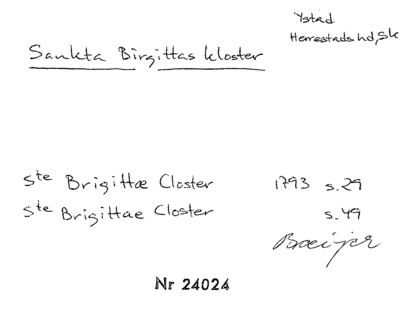 Ystad
Herrestads hd, Sk
Sankta Birgittas kloster
Ste Brigittæ Closter 1793 s.29
Ste Brigittae Closter s.49
Nr 24024